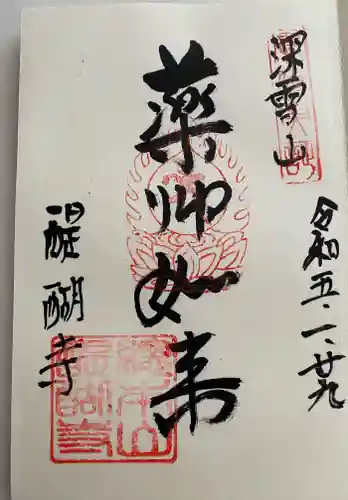 深雪山
令和五・一・廿九
薬师如来
醍醐寺